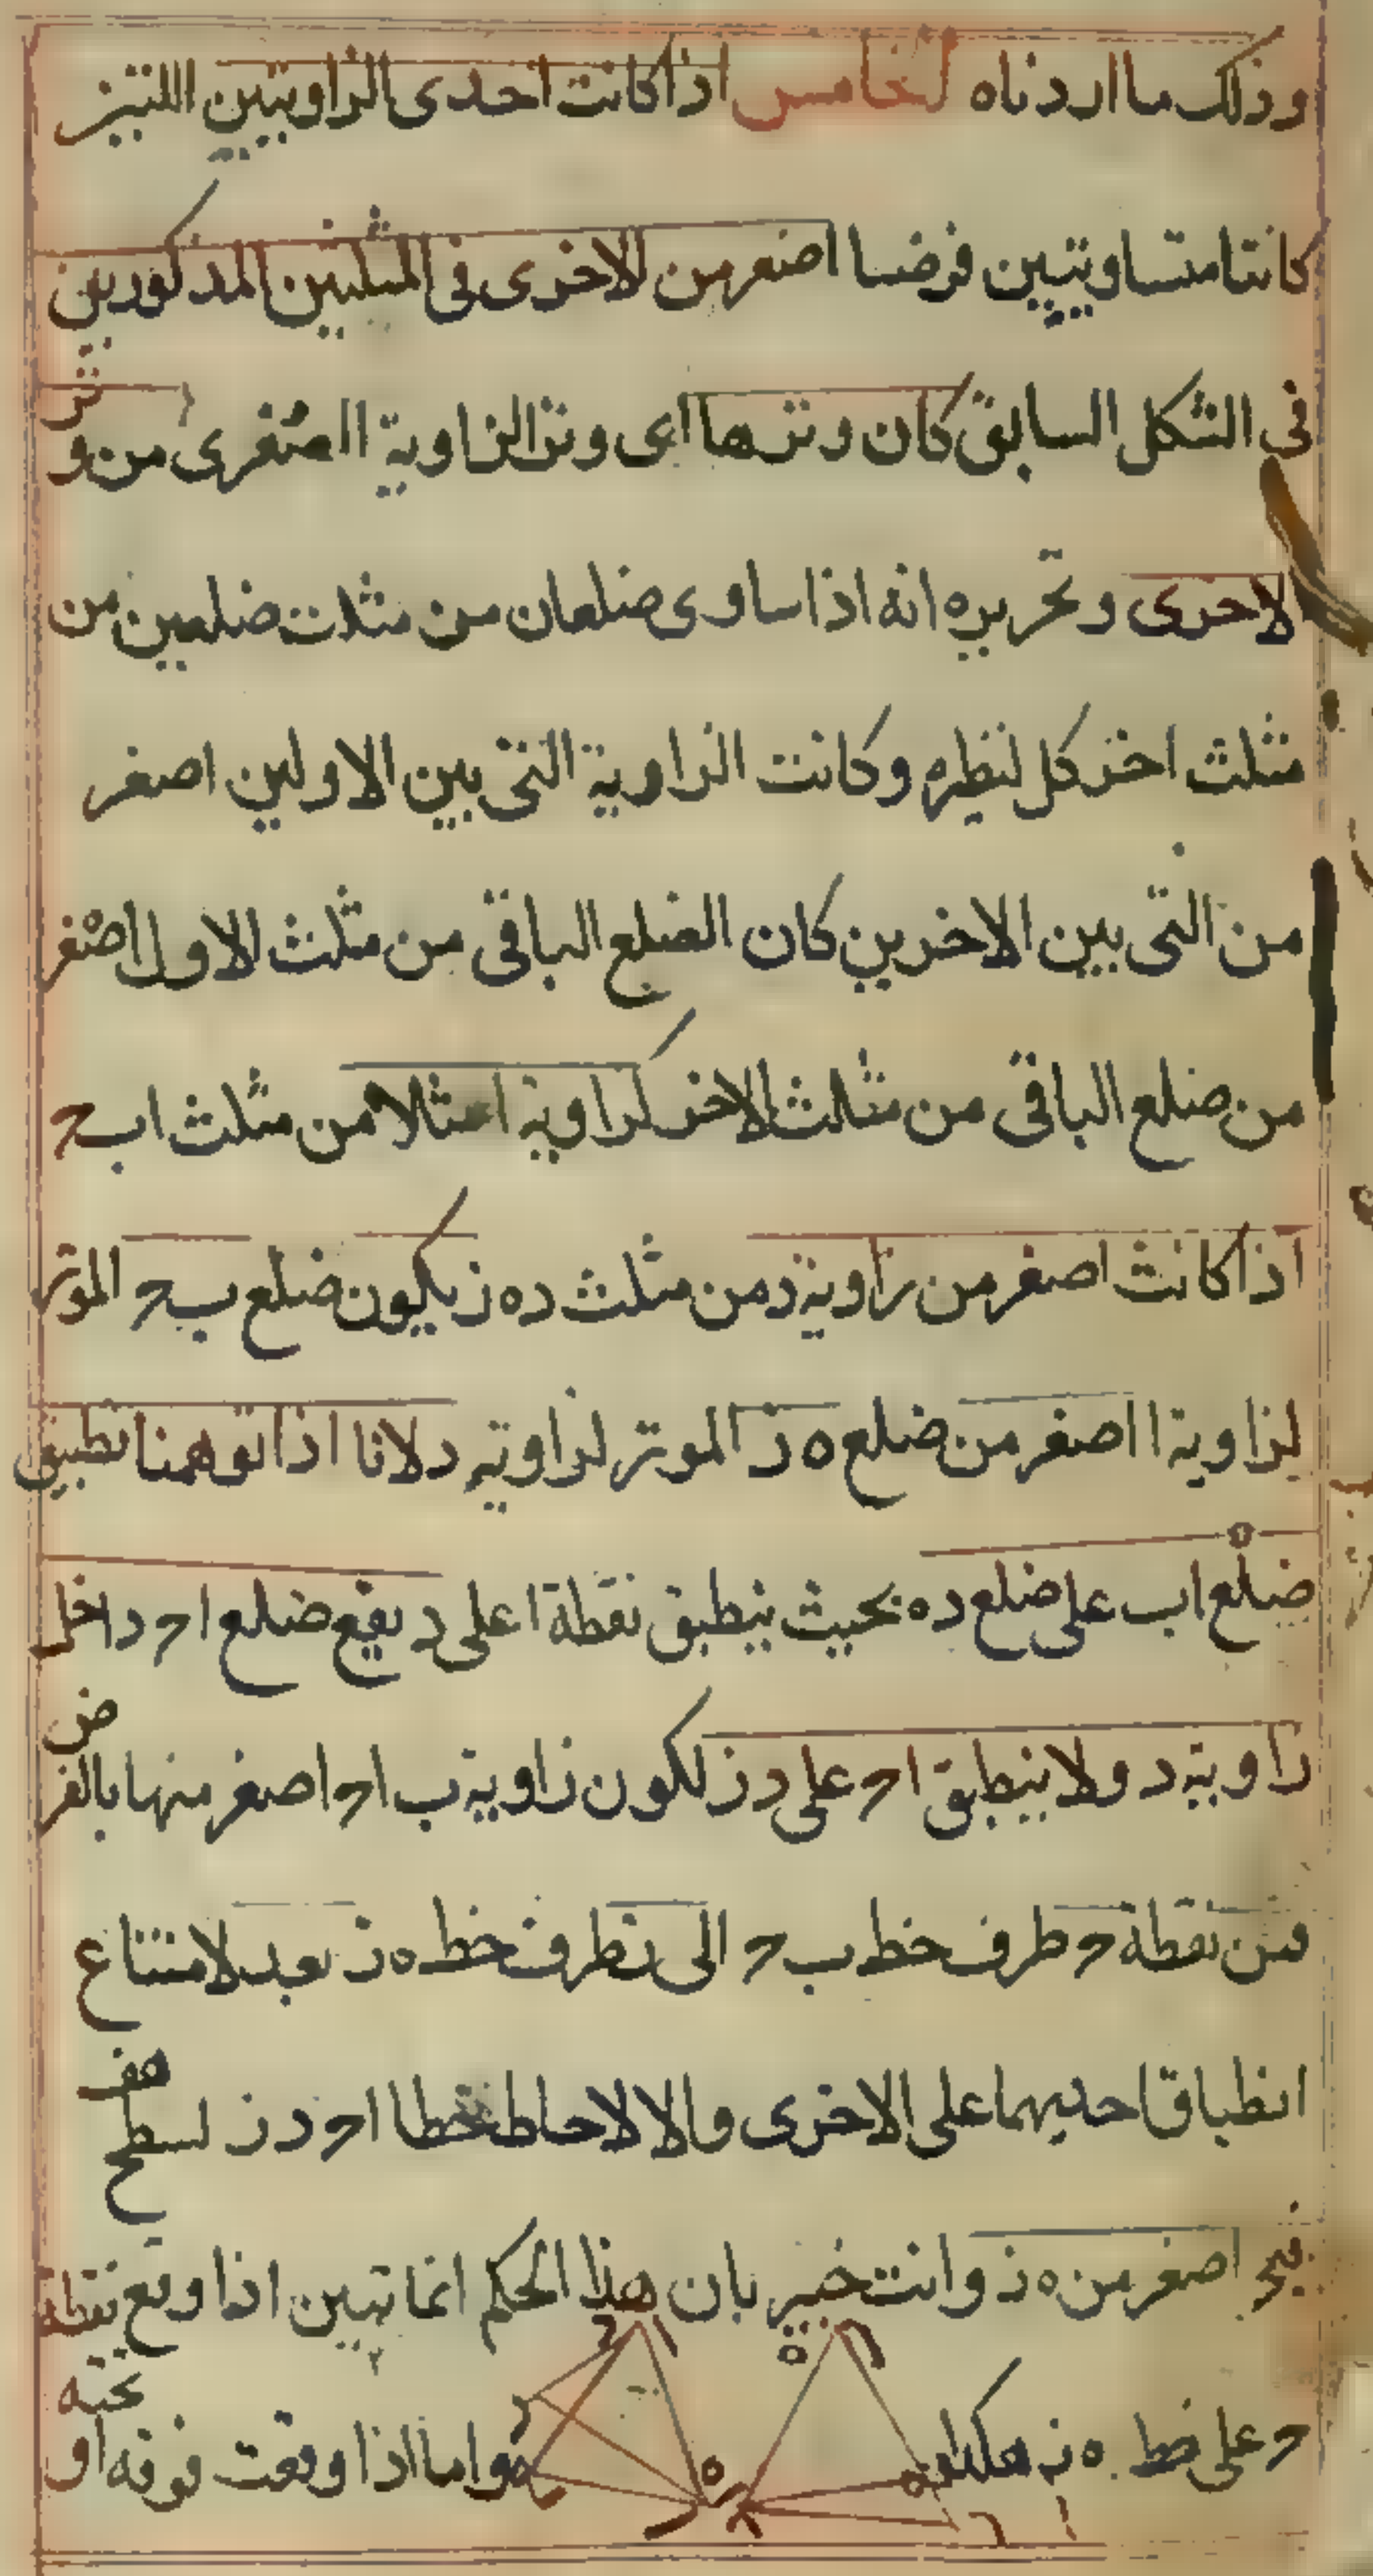 وذلك ما اردناه الخامس اذا كانت احدى الزاويتين اللتين
كانتا متساويتين فرضا اصغر من الاخرى فى المثلثين المذكورين
فى الشكل السابق كان وترها اى وتر الزاوية الصغرى من وتر
الاخرى وتحريره انه اذا ساوى ضلعان من مثلث ضلعين من
مثلث اخر كل لنظيره وكانت الزاوية التى بين الاولين اصغر
من التى بين الاخرين كان الضلع الباقى من مثلث الاول اصغر
من ضلع الباقى من مثلث الاخر كزاوية ا مثلا من مثلث ا ب ح
اذا كانت اصغر من زاوية د من مثلث د ه ز يكون ضلع ب ح الموتر
لزاوية ا اصغر من ضلع ه ز الموتر لزاوية د لانا اذا توهمنا تطبيق
ضلع اب على ضلع د ه بحيث ينطبق نقطة ا على د يقع ضلع ا ح داخل
زاوية د ولا ينطبق ا ح على د ز لكون زاوية ب ا ح اصغر منها بالفرض
فمن نقطة ح طرف خط ب ح الى ز طرف خط ه ز بعد لامتناع
انطباق احديهما على الاخرى والا لاحاط خطا ا ح د ز لسطح هف
فبح اصغر من ه ز وانت خبير بان هذا الحكم انما تبين اذا وقع نقطة
ح على خط ه ز هكذا واما اذا وقعت فوقه او تحته